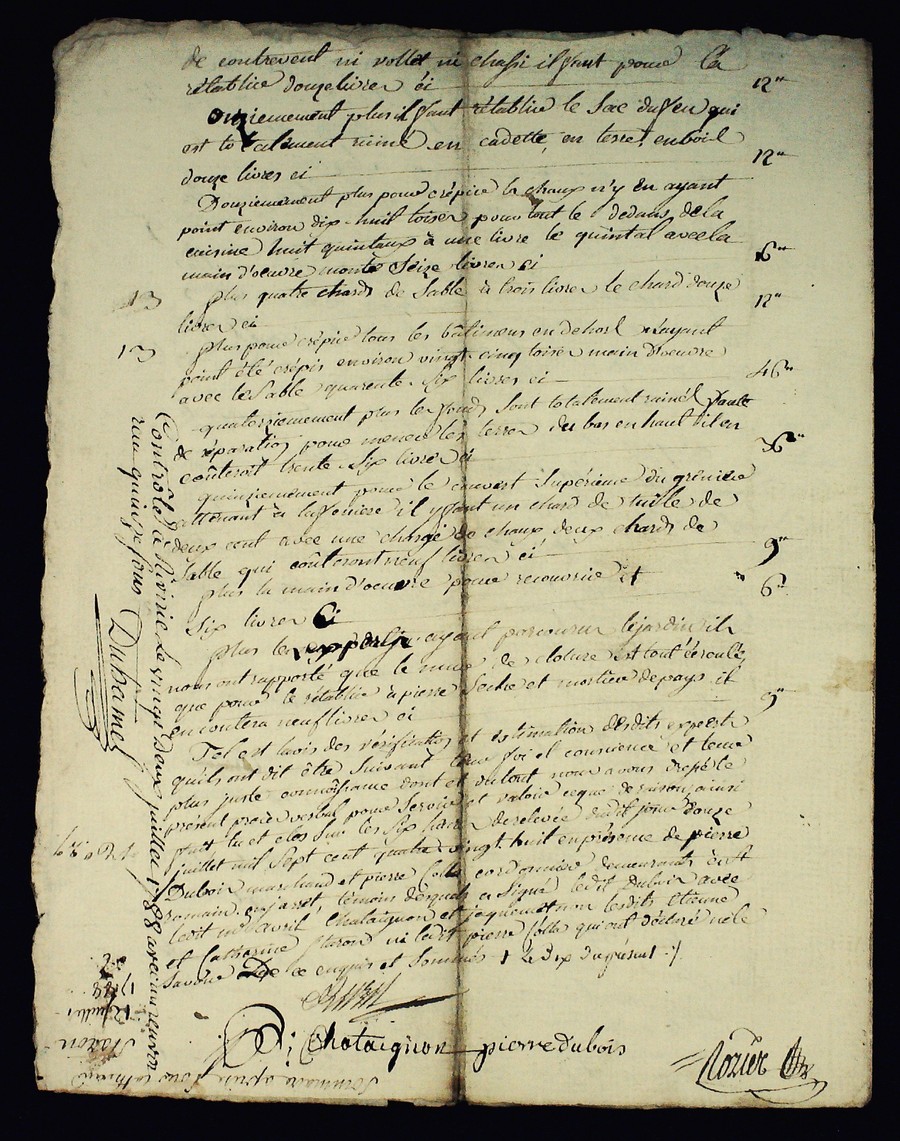 de contrevent ni vollet ni chassi il faut pour la
rétablire douze livres ci 12"
onziemement plus il faut rétablire le Sac du feu qui
est totalement ruiné en cadette, en terre, en bois
douze livres ci 12"
Douziemement plus pour crépire la chaux n'y en ayant
point environ dix-huit toises pour tout le dedans de la
cuisine huit quintaux à une livre le quintal avec la
main d'oeuvre monte Seize livres ci 16"
plus quatre chards de Sable à trois livres le chard douze
livres ci 12"
13 plus pour crépire tous les bâtimens en dehors n'ayant
point été crépis environ vingt-cinq toises main d'oeuvre
avec le Sable quarente-Six livres ci 46"
quatorziemement plus les fonds sont totalement ruinés faute
de réparation pour mener les terres du bas en haut il en
coûteront trente-Six livres ci 36"
quinziemement pour le couvert Supérieure du grenier
attenant à la feniere il y faut un chard de tuille de
deux cent avec une charge de chaux deux chards de
Sable qui coûteront neuf livres ci 9"
plus la main d'oeuvre pour recouvrire et
Six livres Ci 6"
plus les experts ayant parcouru le jardin ils
nous ont rapporté que le mur de cloture est tout écroulé
que pour le rétablire à pierre Seche et mortier de pays il
en contera neuf livres ci 9"
Tel est l'avis des vérification et estimation desdits experts
qu'ils ont dit être Suivant leur foi et conscience et leur
plus juste connoissance dont et du tout nous avons
présent procé verbal pour Servire et valoir ce que de raison ainsi
fait lu et clos Sur les Six heures de relevée dudit jour douze
juillet mil Sept cent quatre vingt huit en présence de pierre
Dubois marchand et pierre Colla cordonnier demeurants à St
romain en jarret témoins desquels a Signé ledit Dubois avec
ledit me avril Chataignon et non lesdits Etienne
et Catherine ni ledit pierre Colla qui ont déclaré ne le
Savoire De ce enquis et Sommés
Chataignon pierre dubois
Nozier
Contrôlé à Rivirie Le vingt Deux juillet 1788
quinze sous Duhamel